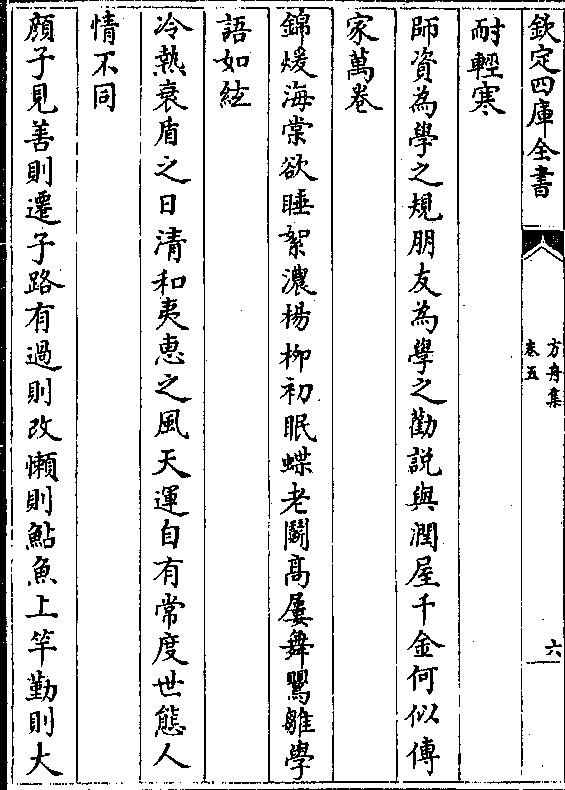 欽定四庫全書
方舟集
卷五
六
耐輕寒
師資為學之規朋友為學之勸説與潤屋千金何似傳
家萬卷
錦煖海棠欲睡絮濃楊柳初眠蝶老鬭高屢舞鸎雛學
語如絃
冷熱衰盾之日清和夷惠之風天運自有常度世態人
情不同
顔子見善則遷子路有過則改懶則鮎魚上竿勤則大